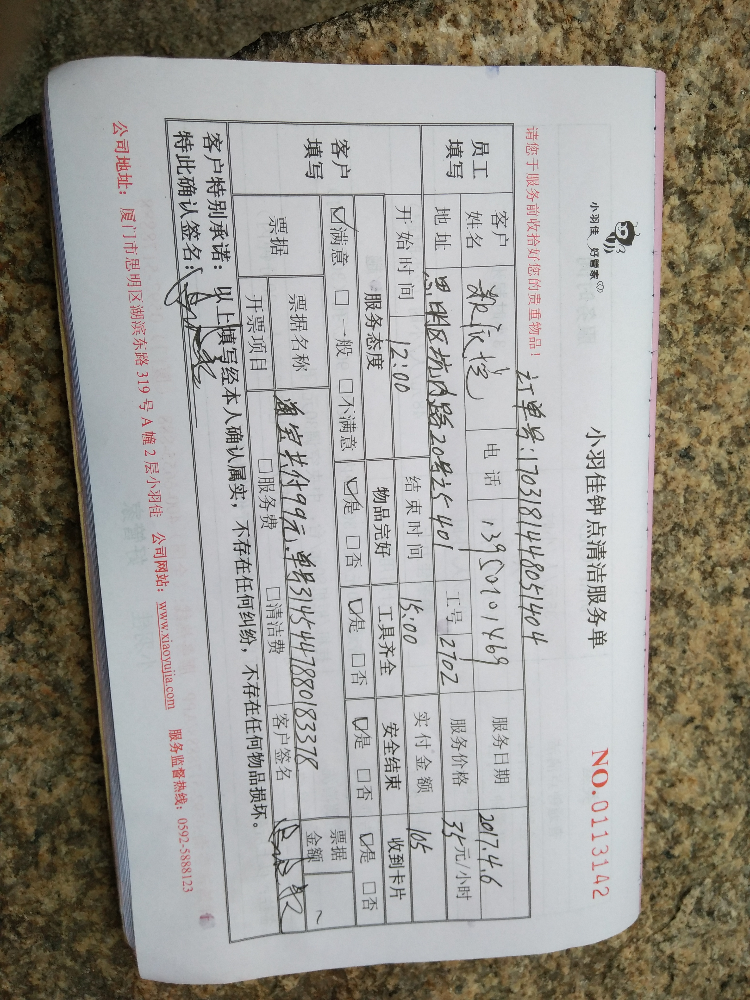 小羽佳 好管家
小羽佳钟点清洁服务单
NO.0113142
请您于服务前收拾好您的贵重物品!
订单号:17031814480511404
员工填写
客户姓名
电话 13950101469
服务日期 2017.4.6
地址 思明区坑内路20号25401
工号 2102
服务价格 35元/小时
开始时间 12:00
结束时间 15:00
实付金额 105
客户填写
服务态度 物品完好 工具齐全 安全结束 收到卡片
☑满意 □一般 □不满意 ☑是 □否 ☑是 □否 ☑是 □否 ☑是 □否
票据
票据名称 淘宝共付99元,单号3145447880183378
票据金额
开票项目 □服务费 □清洁费 客户签名
客户特别承诺:以上填写经本人确认属实,不存在任何纠纷,不存在任何物品损坏。
特此确认签名:
公司地址:厦门市思明区湖滨东路 319 号 A 幢 2 层小羽佳 公司网站:www.xiaoyujia.com 服务监督热线:0592-5888123